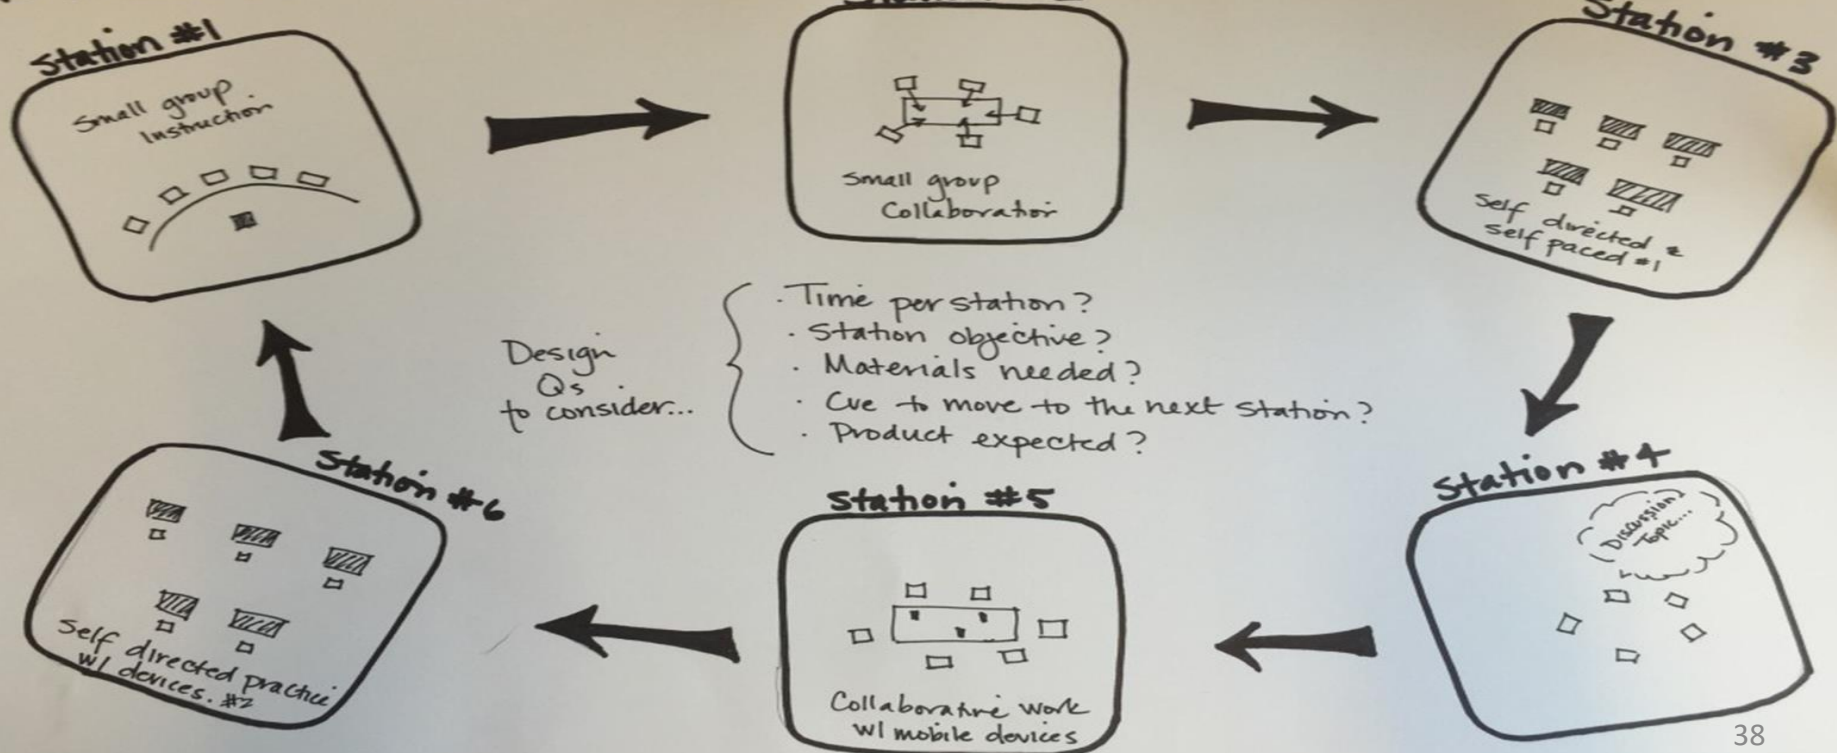 Station #1
Small group
Instruction
Small group
Collaboration
Station #3
Self directed &
Self paced #1
Design
Qs
to consider...
· Time per station?
· Station objective?
· Materials needed?
· Cue to move to the next station?
· Product expected?
Station #4
Discussion
Topic...
Station #5
Collaborative work
w/ mobile devices
Station #6
Self directed practice
w/ devices. #2
38